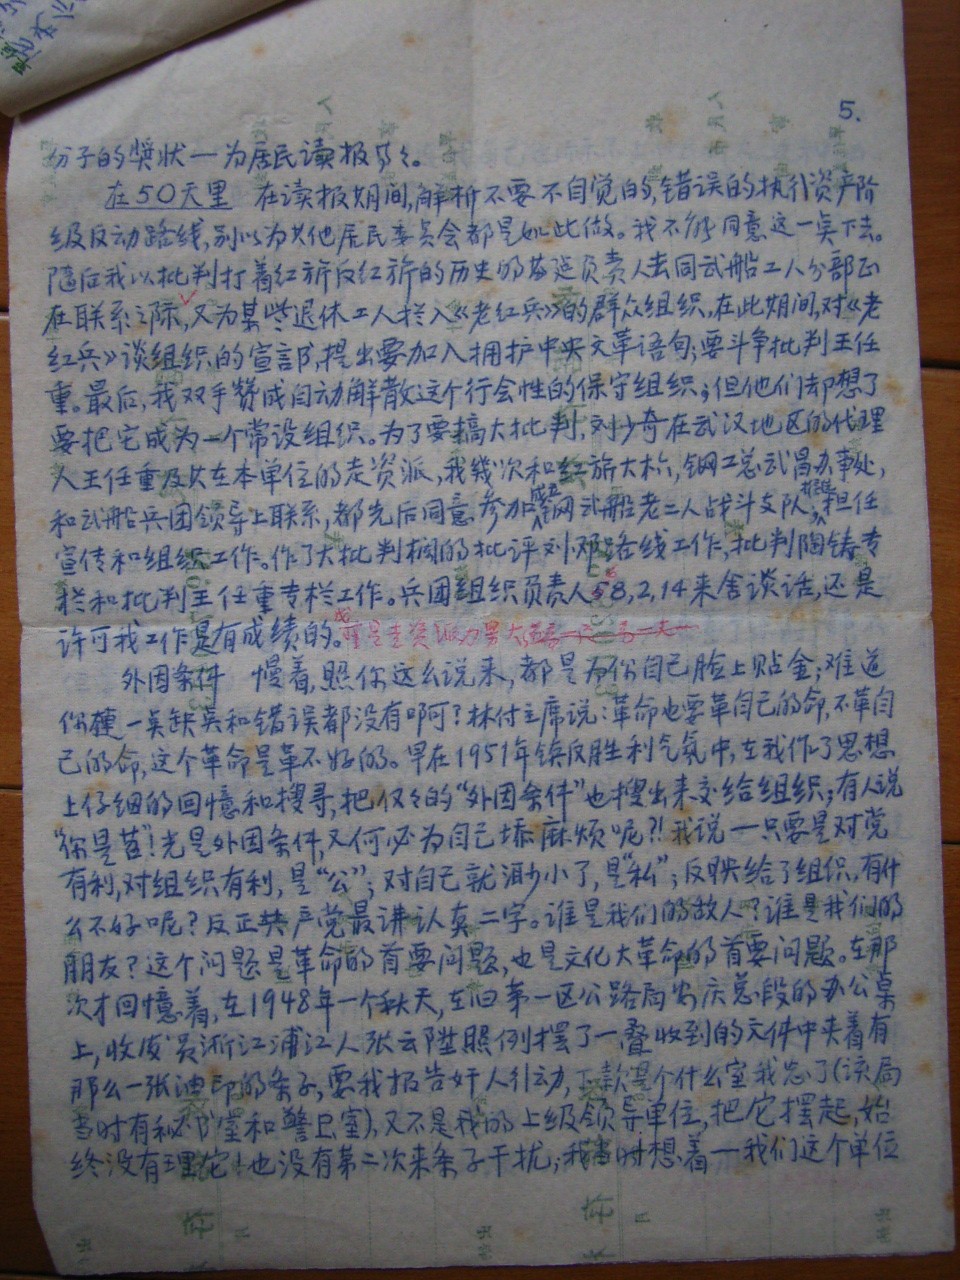 5.
份子的奖状—为居民读报等々。
在50天里 在读报期间,解析不要不自觉的,错误的执行资产阶
级反动路线,别以为其他居民委员会都是如此做。我不能同意这一点下去。
随后我以批判打着红旗反红旗的历史的 负责人去同武船工人分部正
在联系之际,又为某些退休工人拦入《老红兵》的群众组织,在此期间,对《老
红兵》谈组织的宣言部,提出要加入拥护中央文革语句;要斗争批判王任
重。最后,我双手赞成自动解散这个行会性的保守组织;但他们却想了
要把它成为一个常设组织。为了要搞大批判,刘少奇在武汉地区的代理
人王任重及其在本单位的走资派,我几次和红旗大楼,钢工总武昌办事处,
和武船兵团领导上联系,都先后同意参加 钢武船老工人战斗支队, 担任
宣传和组织工作。作了大批判栏的批评刘邓路线工作,批判陶铸专
栏和批判王任重专栏工作。兵团组织负责人68,2,14来舍谈话,还是
许可我工作是有成绩的。
外因条件 慢着,照你这么说来,都是为你自己脸上贴金;难道
你连一点缺点和错误都没有啊?林付主席说:革命也要革自己的命,不革自
己的命,这个革命是革不好的。早在1951年镇反胜利气氛中,在我作了思想
上仔细的回憶和搜寻,把仅々的“外因条件”也搜出来交给组织;有人说
“你是苕”!光是外因条件,又何必为自己添麻烦呢?!我说—只要是对党
有利,对组织有利,是“公”;对自己就渺小了,是“私”;反映给了组织,有什
么不好呢?反正共产党最讲认真二字。谁是我们的敌人?谁是我们的
朋友?这个问题是革命的首要问题,也是文化大革命的首要问题。在那
次才回憶着,在1948年一个秋天,在旧第一区公路局安庆总段的办公桌
上,收发员浙江浦江人张云陞照例摆了一叠收到的文件中夹着有
那么一张油印的条子,要我报告奸人行动,下款是个什么室我忘了(该局
当时有秘书室和警卫室),又不是我的上级领导单位,把它摆起,始
终没有理它!也没有第二次来条子干扰;我当时想着—我们这个单位